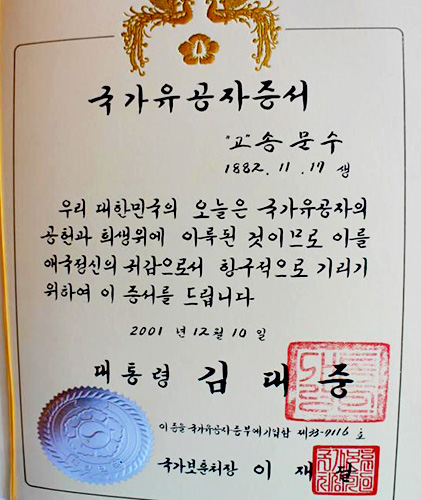 국가유공자증서
"고" 송 문 수
1882. 11. 17 생
우리 대한민국의 오늘은 국가유공자의
공헌과 희생위에 이룩된 것이므로 이를
애국정신의 귀감으로서 항구적으로 기리기
위하여 이 증서를 드립니다
2001 년 12 월 10 일
대통령 김 대 중
이 증을 국가유공자증부에 기입함 제33-9116 호
국가보훈처장 이 재 달